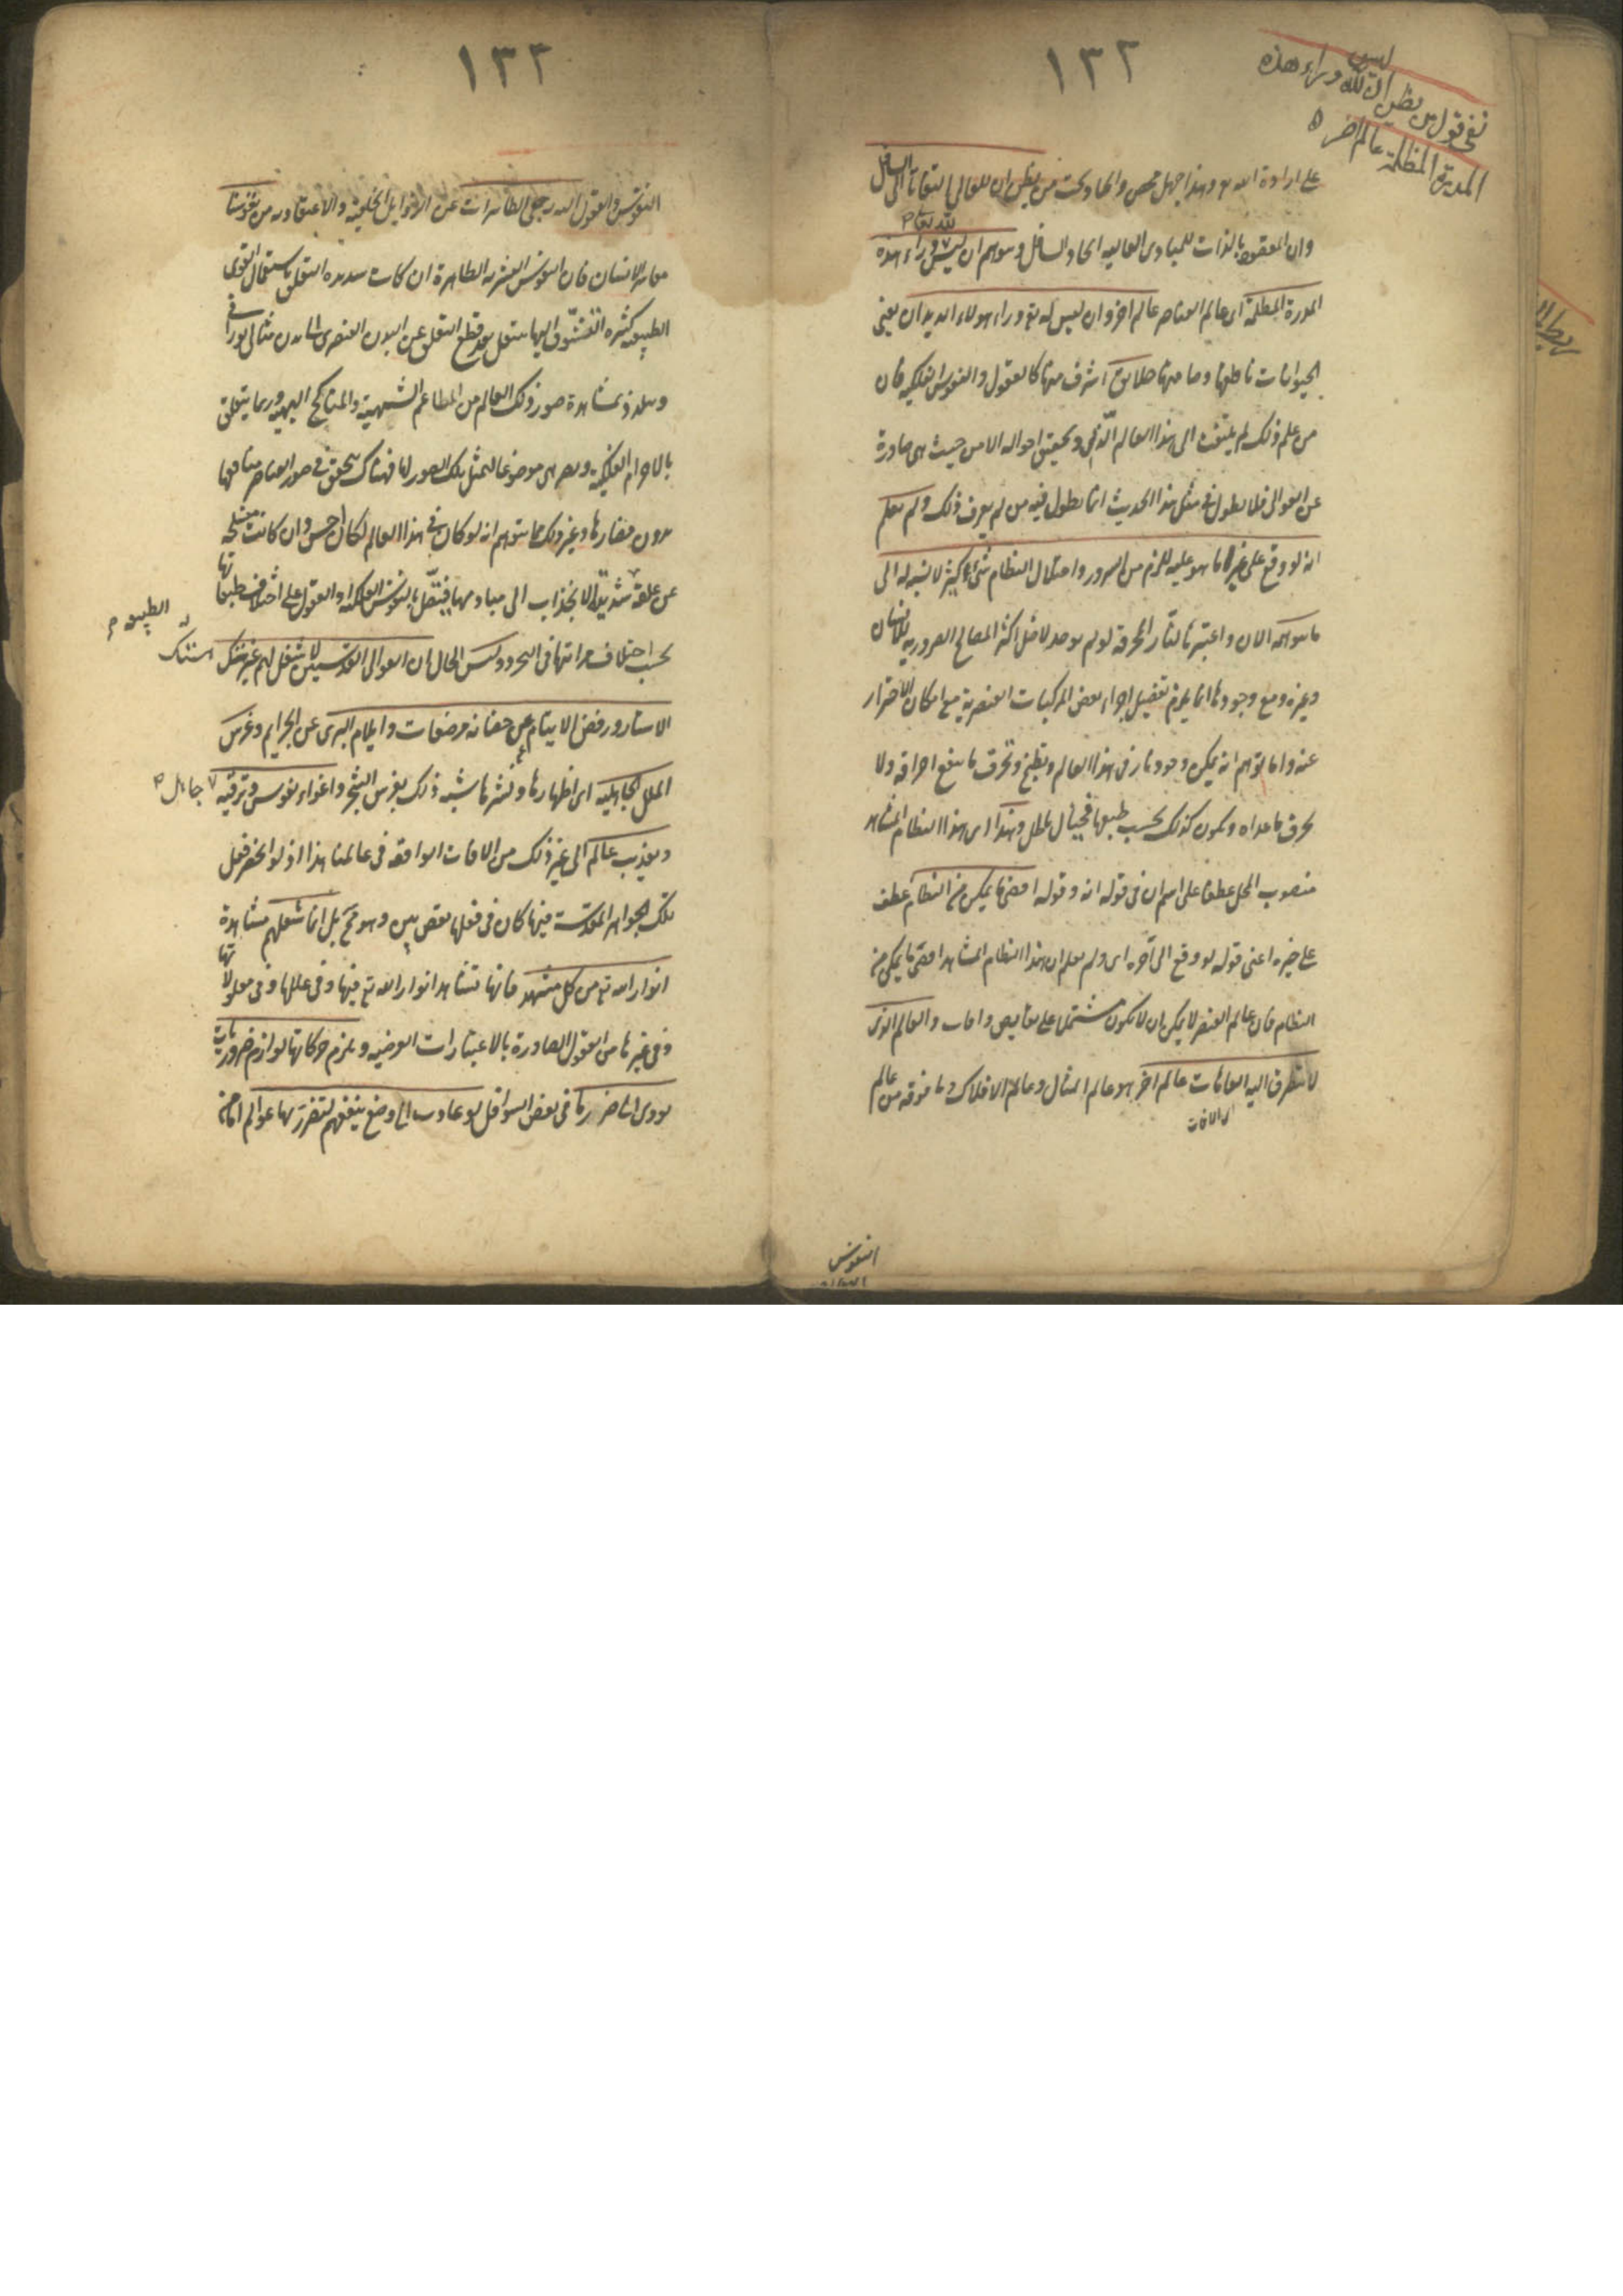 ١٣٢
نفى قول من يظن ان ليس لله وراء هذه
المدرة المظلمة عالم اخر ه
على ارادة الله وهذا جهل محض والحاد بحت من يظن ان للعالى التفاتا الى السافل
وان المقصود بالذات للمبادى العاليه ايجاد السافل وتوهم ان ليس لله تعالى وراء هذه
المدرة المظلمة اى عالم العناصر عالم اخر وان ليس له تع وراء هولاء الديدان يعنى
الحيوانات ناطقها وصامتها خلايق اشرف منها كالعقول والنفوس الفلكيه فان
من علم ذلك لم يلتفت الى هذا العالم وتحقيق احواله الا من حيث هى صادرة
عن العوالى فلا يطول فى مثل هذا الحديث انما يطول فيه من لم يعرف ذلك ولم يعلم
انه لو وقع على غير ما هو عليه للزم من الشرور واختلال النظام شىء كثير لا نسبه له الى
ما يتوهمه الان واعتبر بالنار المحرقة لو لم يوجد لاختل اكثر المصالح الضروريه للانسان
وغيره ومع وجودها انما يلزم تفصيل اجزاء بعض المركبات العنصرية مع امكان الاحتراز
عنه واما توهم انه يمكن وجود نار فى هذا العالم ويطبخ وتحرق ما ينفع احراقه ولا
يحرق ما عداه ويكون كذلك بحسب طبعها فخيال باطل وهذا اى هذا النظام المشاهد
منصوب المحل عطفا على اسم ان فى قوله انه وقوله اقصى ما يمكن من النظام عطف
على خبره اعنى قوله لو وقع الى آخره اى ولم يعلم ان هذا النظام المشاهد اقصى ما يمكن من
النظام فان عالم العنصر لا يمكن ان لا يكون مشتملا على نقايص وافات والعالم الذى
لا يتطرق اليه العاهات عالم آخر هو عالم المثال وعالم الافلاك وما فوقه من عالم
اى الافات
النفوس
١٣٣
النفوس والعقول اليه رجعى الطاهرات عن الرذايل الخلقية والاعتقاديه من نفوسنا
معاشر الانسان فان النفوس البشريه الطاهرة ان كانت شديده التعلق باستعمال القوى
الطبيعه كثيرة التشوق اليها ينتقل بعد قطع التعلق عن البدن العنصرى الى بدن مثالى نورانى
ويتلذذ بمشاهدة صور ذلك العالم من المطاعم الشهية والمناكح البهيه وربما يتعلق
بالاجرام الفلكية ويصير هى موضوعا لتمثل تلك الصور لها فهناك يتحقق فى صور العناصر منافعها
بدون مضارها وغير ذلك مما يتوهم انه لو كان فى هذا العالم لكان احسن وان كانت منسلخه
عن علقة الطبيعه شديدة الانجذاب الى مباديها فيتصل بالنفوس الفلكيه او العقول على اختلاف طبقاتها
بحسب اختلاف مراتبها فى التجرد وليس الحال ان العوالى القدسيين لا شغل لهم غير هتك
الاستار ورفض الايتام عن حضانة مرضعات وايلام البرى عن الجرايم وغرس
الملل الجاهلية اى اظهارها ونشرها شبه ذلك بغرس الشجر واغواء نفوس وترقيه جاهل
وتعذيب عالم الى غير ذلك من الافات الواقعه فى عالمنا هذا اذ لو انحصر فعل
تلك الجواهر المقدسة فيها كان فى فعلها نقص بين وهو مح بل انما شغلهم مشاهدة
انوار الله تع من كل مشهد فانها تشاهد انوار الله تع فيها وفى عللها وفى معلولاتها
وفى غيرها من العقول الصادرة بالاعتبارات العرضيه ويلزم حركاتها لوازم ضروريات
يودى الى ضرر ما فى بعض السوافل لو عادت الى وضع ينفعهم لتضرر بها عوالم